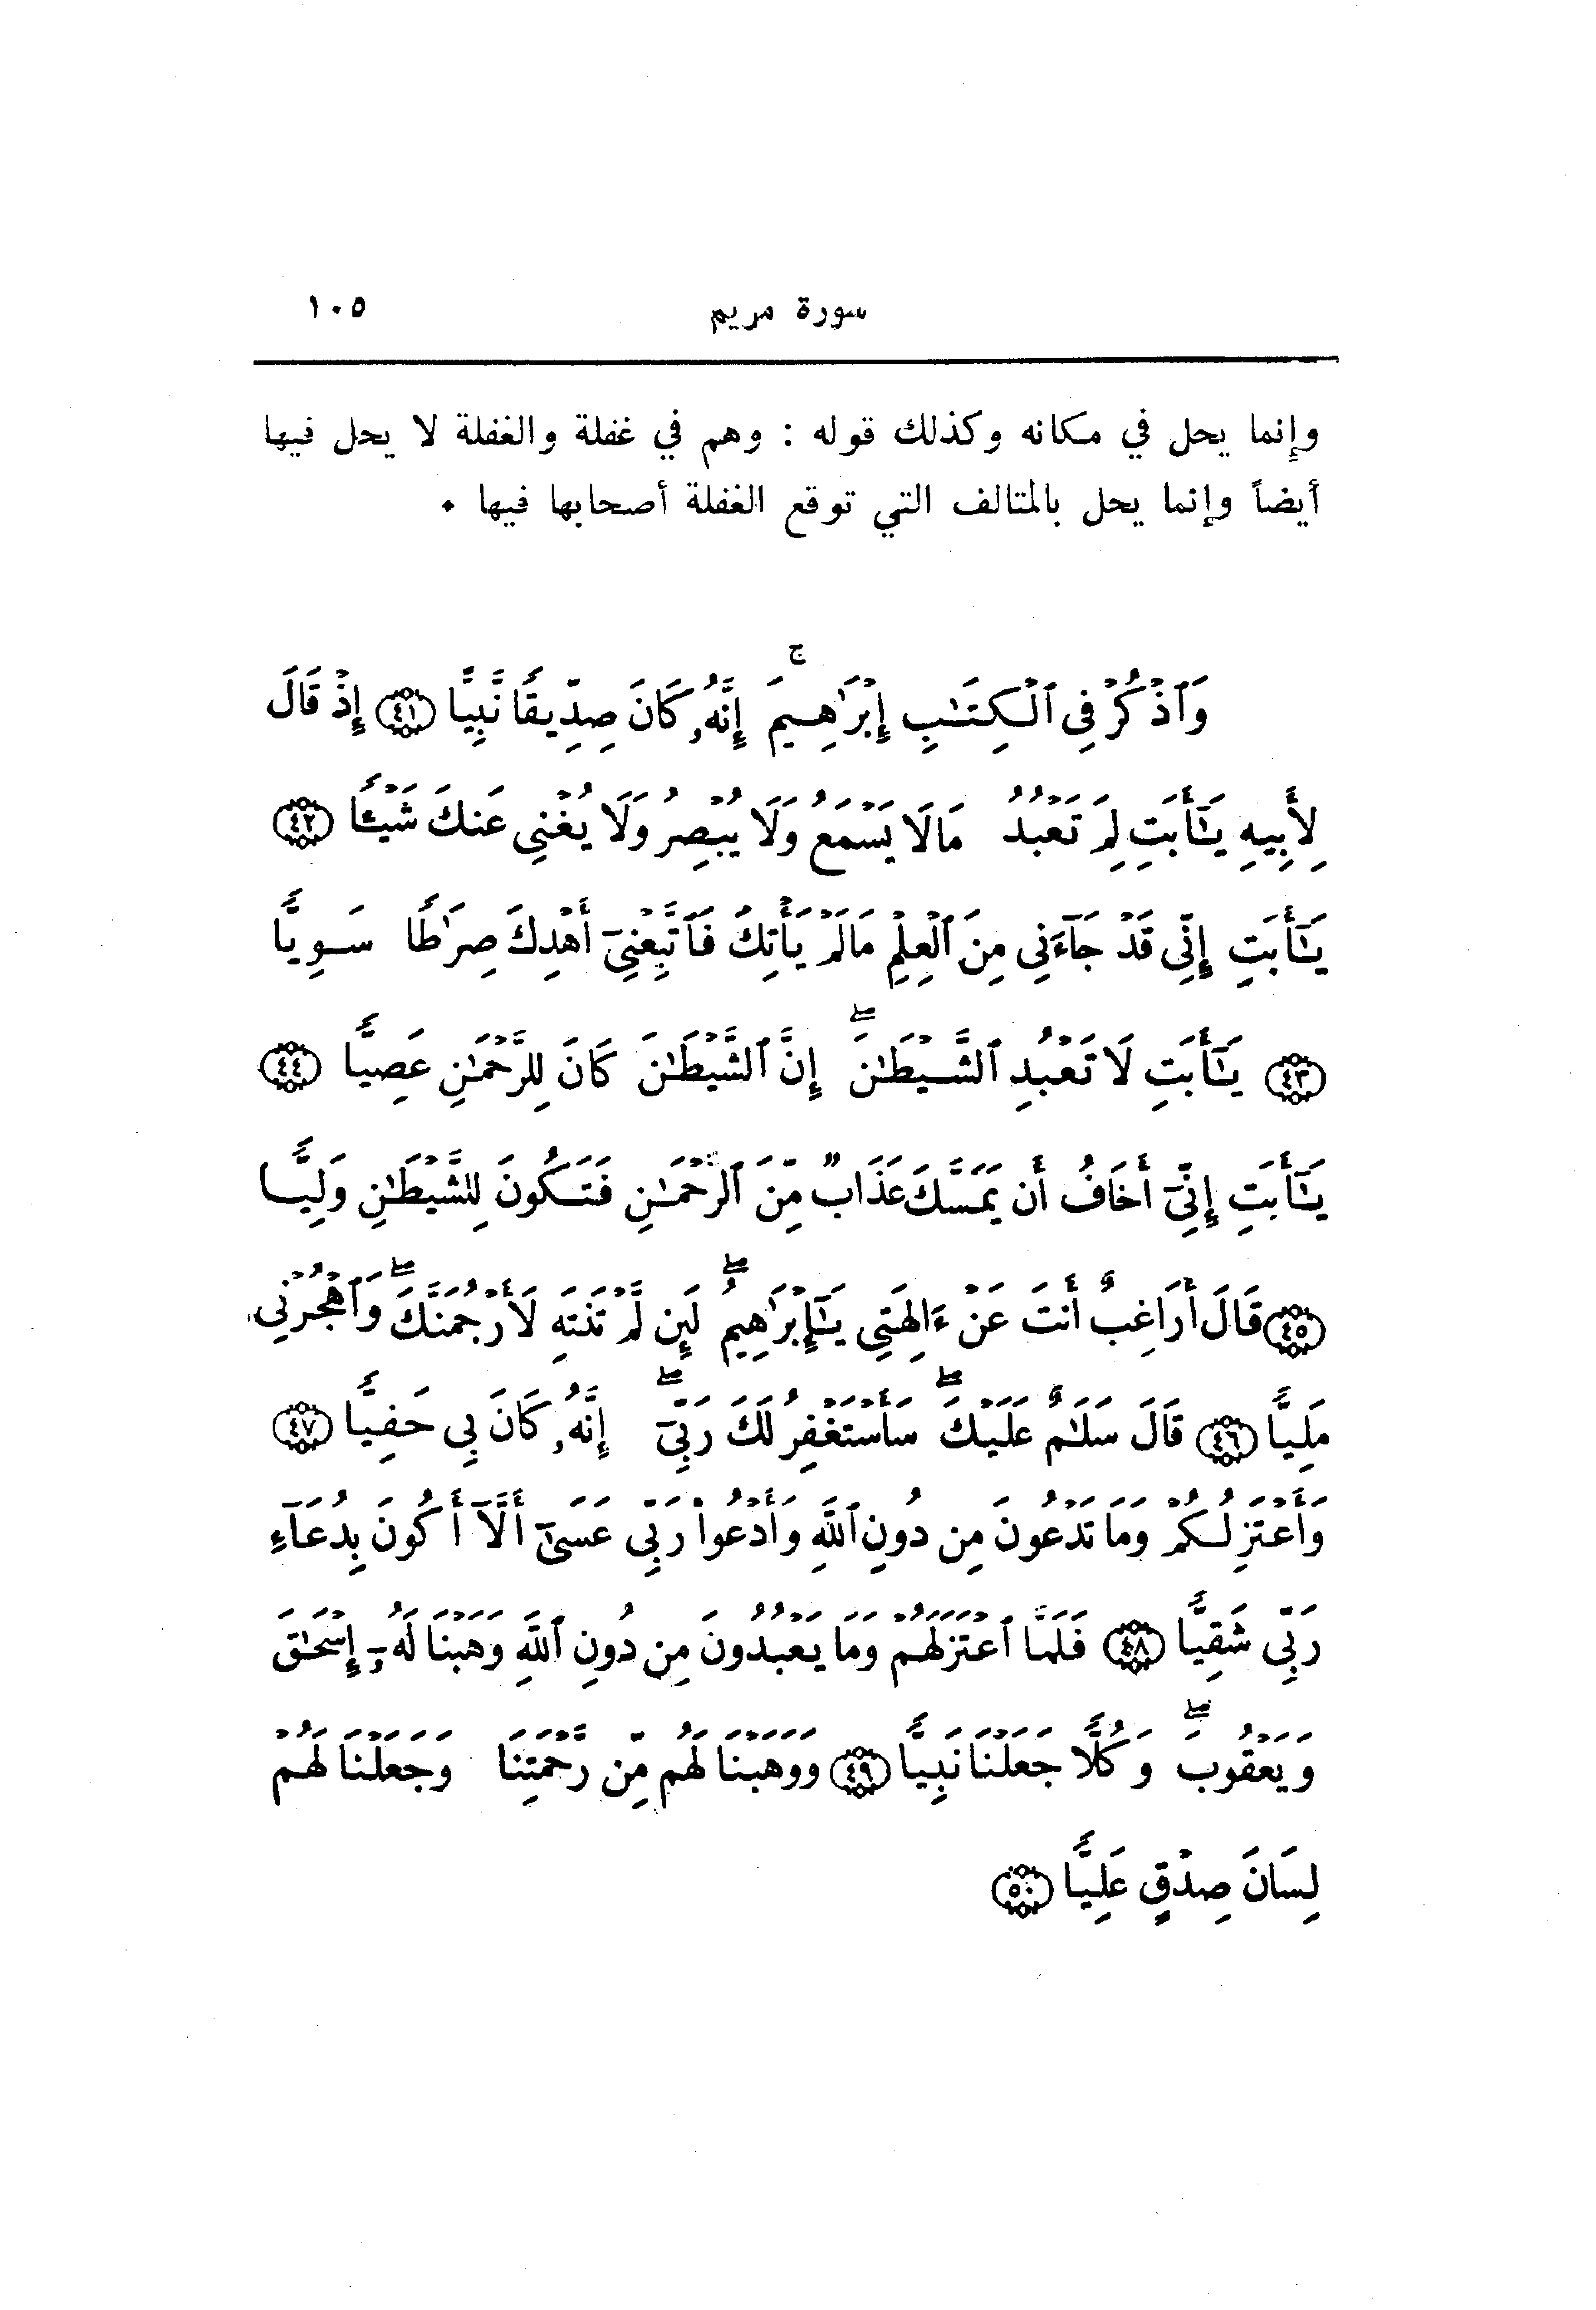 سورة مريم ١٠٥
وإنما يحل في مكانه وكذلك قوله : وهم في غفلة والغفلة لا يحل فيها
أيضاً وإنما يحل بالمتالف التي توقع الغفلة أصحابها فيها ٠
وَٱذْكُرْ فِى ٱلْكِتَـٰبِ إِبْرَٰهِيمَ ۚ إِنَّهُۥ كَانَ صِدِّيقًا نَّبِيًّا ﴿٤١﴾ إِذْ قَالَ
لِأَبِيهِ يَـٰٓأَبَتِ لِمَ تَعْبُدُ مَا لَا يَسْمَعُ وَلَا يُبْصِرُ وَلَا يُغْنِى عَنكَ شَيْـًٔا ﴿٤٢﴾
يَـٰٓأَبَتِ إِنِّى قَدْ جَآءَنِى مِنَ ٱلْعِلْمِ مَا لَمْ يَأْتِكَ فَٱتَّبِعْنِىٓ أَهْدِكَ صِرَٰطًا سَوِيًّا
﴿٤٣﴾ يَـٰٓأَبَتِ لَا تَعْبُدِ ٱلشَّيْطَـٰنَ ۖ إِنَّ ٱلشَّيْطَـٰنَ كَانَ لِلرَّحْمَـٰنِ عَصِيًّا ﴿٤٤﴾
يَـٰٓأَبَتِ إِنِّىٓ أَخَافُ أَن يَمَسَّكَ عَذَابٌ مِّنَ ٱلرَّحْمَـٰنِ فَتَكُونَ لِلشَّيْطَـٰنِ وَلِيًّا
﴿٤٥﴾ قَالَ أَرَاغِبٌ أَنتَ عَنْ ءَالِهَتِى يَـٰٓإِبْرَٰهِيمُ ۖ لَئِن لَّمْ تَنتَهِ لَأَرْجُمَنَّكَ ۖ وَٱهْجُرْنِى
مَلِيًّا ﴿٤٦﴾ قَالَ سَلَـٰمٌ عَلَيْكَ ۖ سَأَسْتَغْفِرُ لَكَ رَبِّىٓ ۖ إِنَّهُۥ كَانَ بِى حَفِيًّا ﴿٤٧﴾
وَأَعْتَزِلُكُمْ وَمَا تَدْعُونَ مِن دُونِ ٱللَّهِ وَأَدْعُوا۟ رَبِّى عَسَىٰٓ أَلَّآ أَكُونَ بِدُعَآءِ
رَبِّى شَقِيًّا ﴿٤٨﴾ فَلَمَّا ٱعْتَزَلَهُمْ وَمَا يَعْبُدُونَ مِن دُونِ ٱللَّهِ وَهَبْنَا لَهُۥٓ إِسْحَـٰقَ
وَيَعْقُوبَ ۖ وَكُلًّا جَعَلْنَا نَبِيًّا ﴿٤٩﴾ وَوَهَبْنَا لَهُم مِّن رَّحْمَتِنَا وَجَعَلْنَا لَهُمْ
لِسَانَ صِدْقٍ عَلِيًّا ﴿٥٠﴾